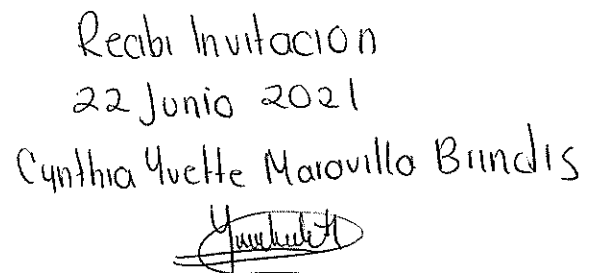 Recibi Invitacion
22 Junio 2021
Cynthia Yvette Maravilla Brindis